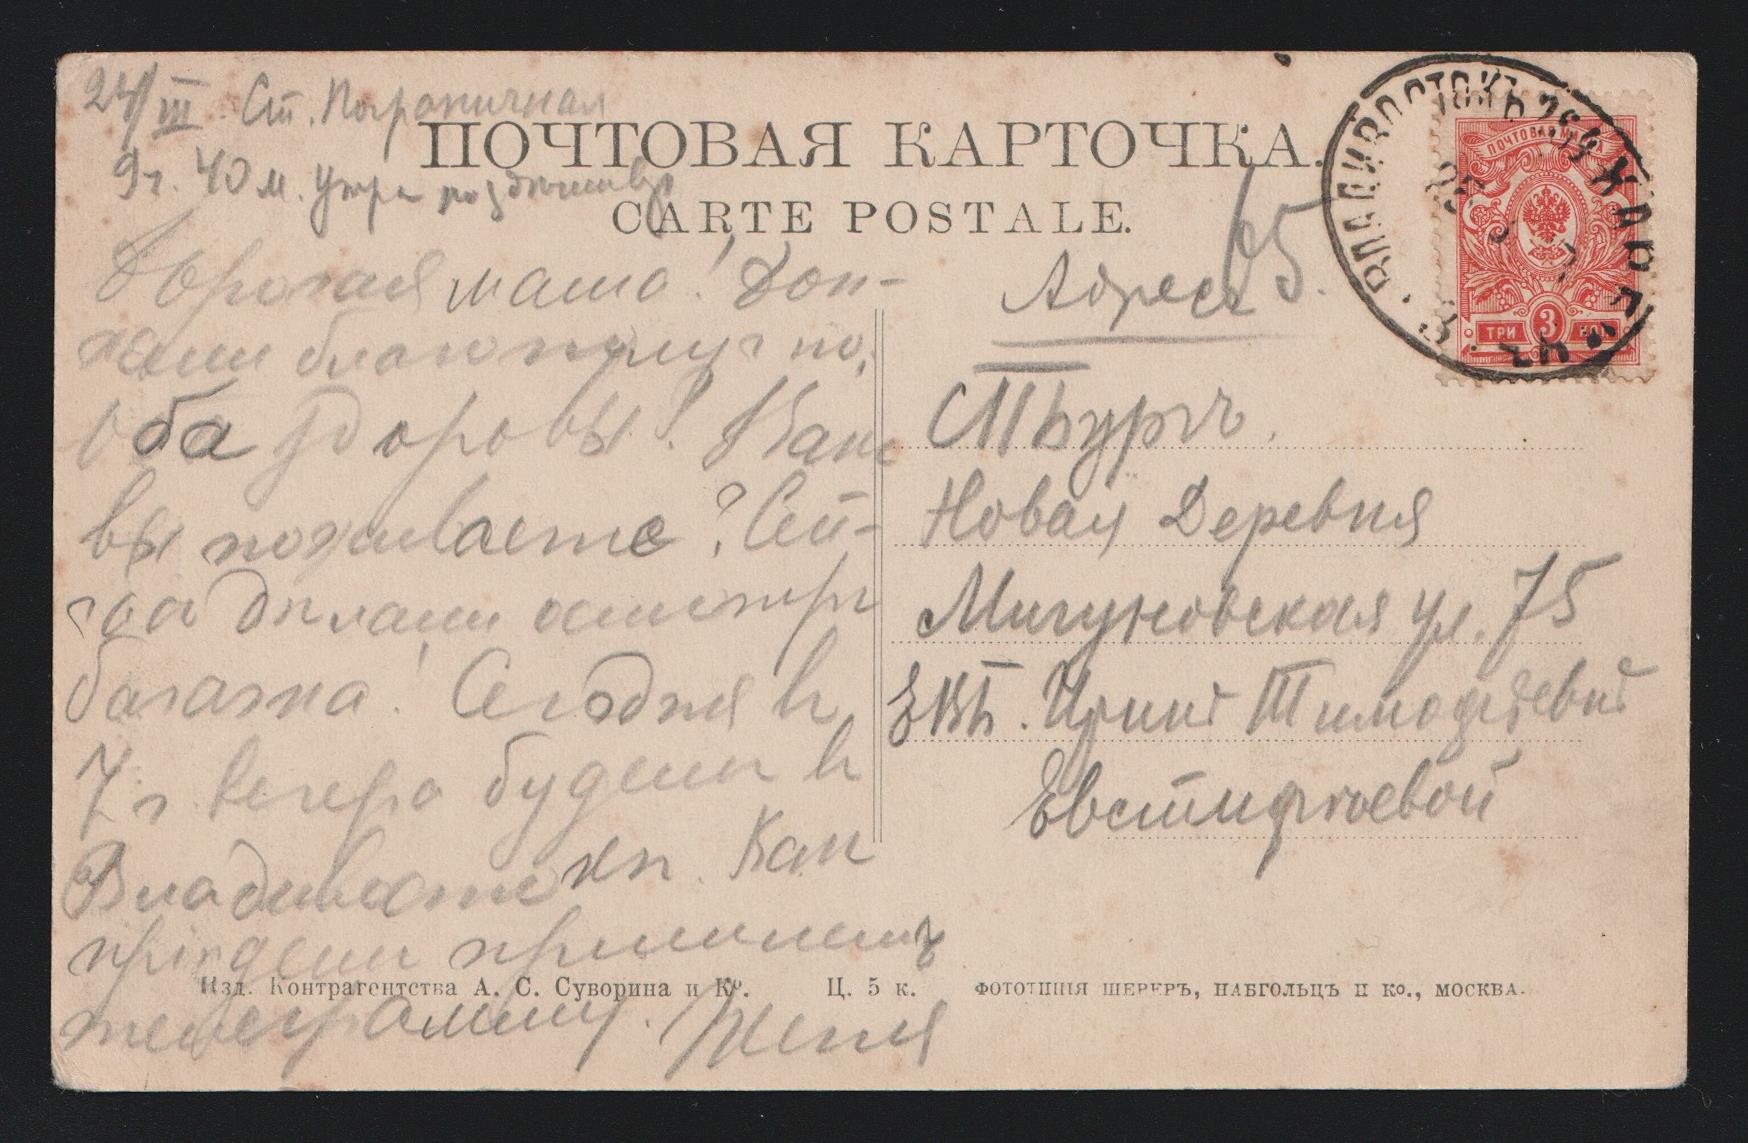 24/III Ст. Пограничная
9 г. 40 м. утра
ПОЧТОВАЯ КАРТОЧКА.
CARTE POSTALE.
Дорогая мама! Дое-
хали благополучно,
оба здоровы! Какъ
вы поживаете? Сей-
часъ делали осмотръ
багажа! Сегодня в
7 ч вечера будемъ в
Владивостокѣ. Какъ
пріѣдемъ пришлемъ
телеграмму. Женя
65
Адресъ
СПБургъ.
Новая Деревня
Мигуновская ул. 75
ЕВБ. Иринѣ Тимофѣевнѣ
Евстифѣевой
ВЛАДИВОСТОКЪ 264 ХАРБИНЪ
ПОЧТОВАЯ МАРКА
ТРИ 3 КОП
Изд. Контрагентства А. С. Суворина и Ко. Ц. 5 к. ФОТОТИПІЯ ШЕРЕРЪ, НАБГОЛЬЦЪ И Ко., МОСКВА.